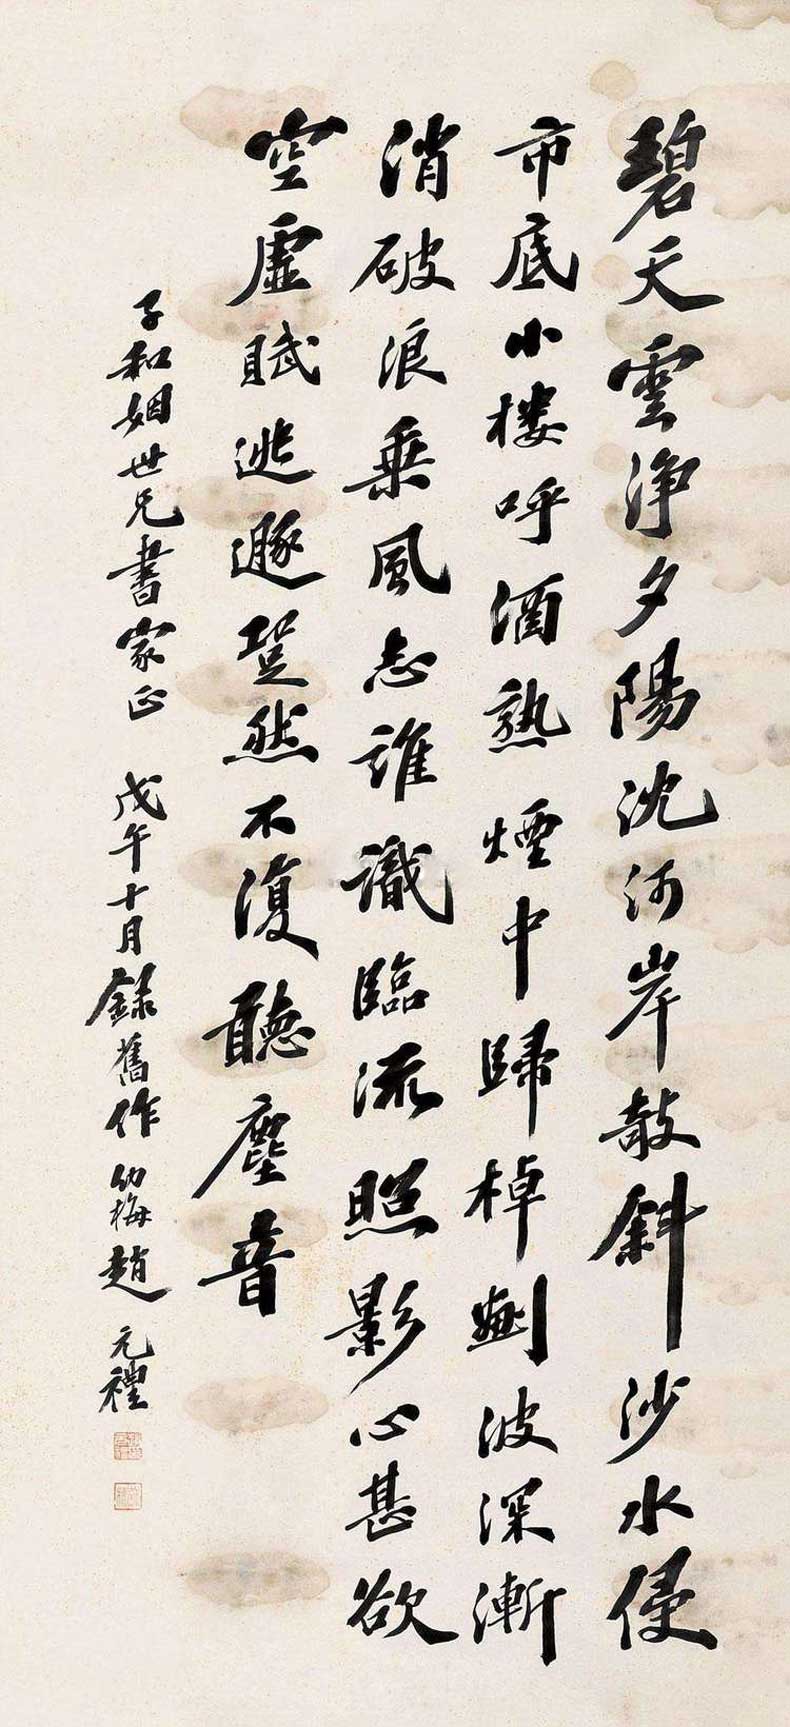 碧天雲浄夕陽沈河岸敧斜沙水侵
市底小楼呼酒熟煙中歸棹波深漸
消破浪乘風志誰識臨流照影心甚欲
空虛賦逃遯跫然不復聽塵音
子和姻世兄書家正 戊午十月録舊作 幼梅趙元禮